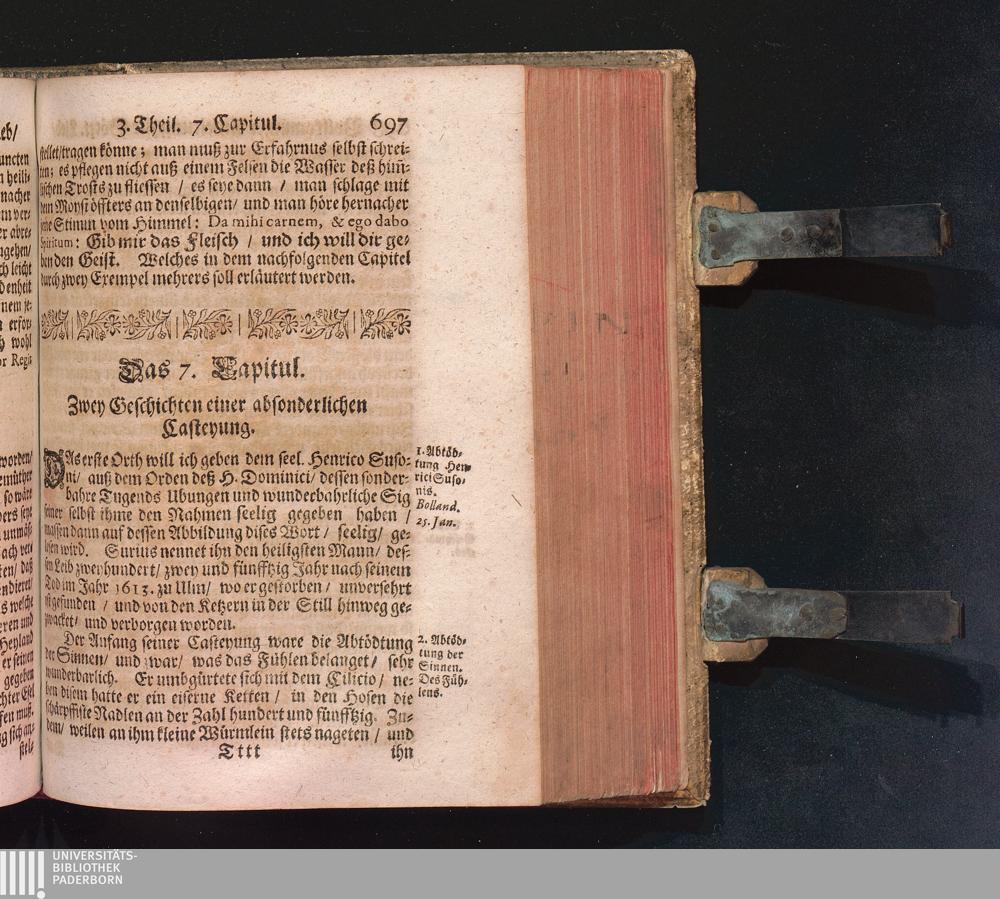 3. Theil. 7. Capitul. 697
stellet/tragen könne; man muß zur Erfahrnus selbst schrei-
ten; es pflegen nicht auß einem Felsen die Wasser deß him̃-
lischen Trosts zu fliessen / es seye dann / man schlage mit
dem Moyse öffters an denselbigen/ und man höre hernacher
jene Stimm vom Himmel: Da mihi carnem, & ego dabo
spiritum: Gib mir das Fleisch / und ich will dir ge-
ben den Geist. Welches in dem nachfolgenden Capitel
durch zwey Exempel mehrers soll erläutert werden.
Das 7. Capitul.
Zwey Geschichten einer absonderlichen
Casteyung.
DAs erste Orth will ich geben dem seel. Henrico Suso-
ni/ auß dem Orden deß H. Dominici/ dessen sonder-
bahre Tugends Ubungen und wunderbahrliche Sig
seiner selbst ihme den Nahmen seelig gegeben haben /
massen dann auf dessen Abbildung dises Wort / seelig/ ge-
lesen wird. Surius nennet ihn den heiligsten Mann/ des-
sen Leib zweyhundert/ zwey und fünfftzig Jahr nach seinem
Tod im Jahr 1613. zu Ulm/ wo er gestorben/ unversehrt
ist gefunden / und von den Ketzern in der Still hinweg ge-
zwacket/ und verborgen worden.
Der Anfang seiner Casteyung ware die Abtödtung
der Sinnen/ und zwar/ was das Fühlen belanget/ sehr
wunderbarlich. Er umbgürtete sich mit dem Cilicio/ ne-
ben disem hatte er ein eiserne Ketten / in den Hosen die
schärpffiste Nadlen an der Zahl hundert und fünfftzig. Zu-
dem/ weilen an ihm kleine Würmlein stets nageten / und
Tttt ihn
1. Abtöd-
tung Hen-
rici Suso-
nis.
Bolland.
25. Jan.
2. Abtöd-
tung der
Sinnen.
Des Füh-
lens.
UNIVERSITÄTS-
BIBLIOTHEK
PADERBORN